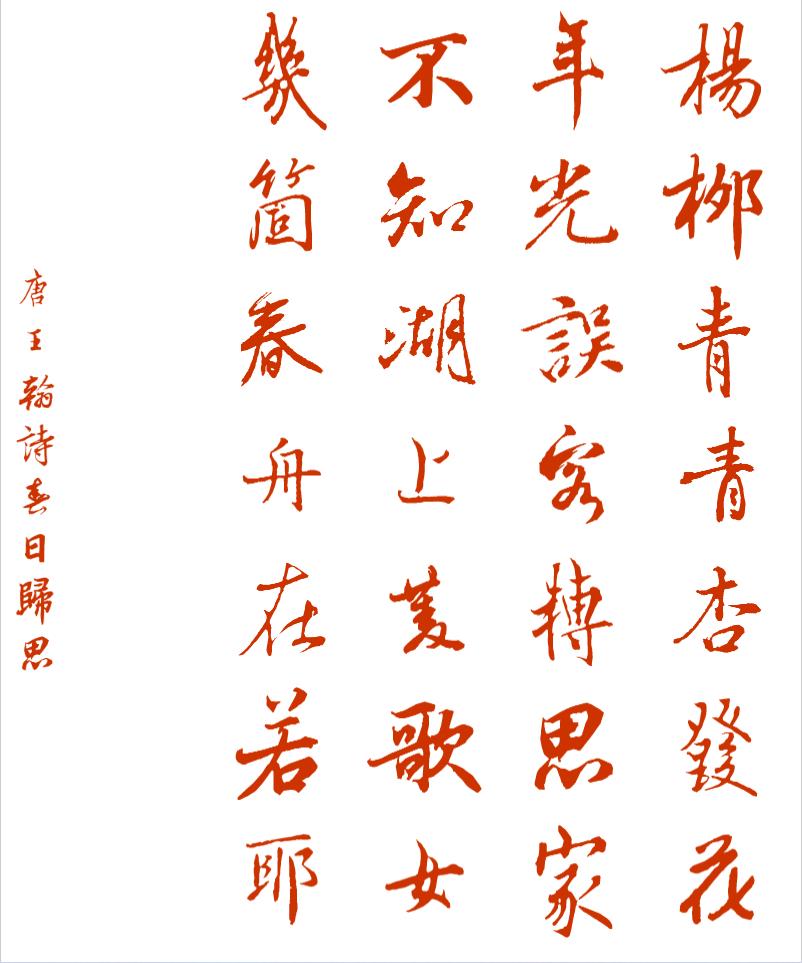 楊柳青青杏發花
年光誤客轉思家
不知湖上菱歌女
幾箇春舟在若耶
唐王翰詩春日歸思